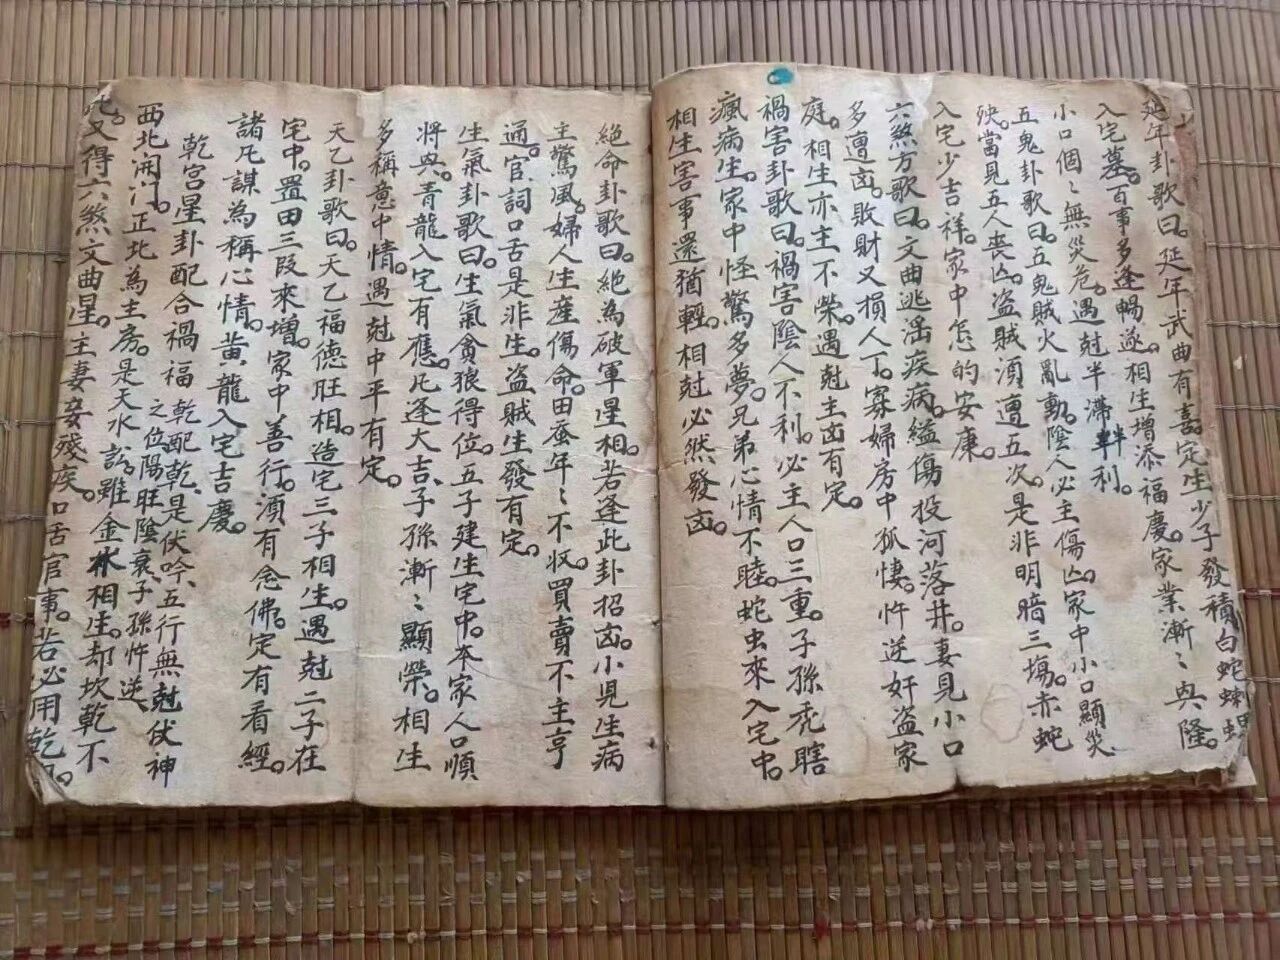 延年卦歌曰。延年武曲有喜。定生少子發積白蛇
入宅墓。百事多逢暢遂。相生增添福慶。家業漸〻興隆。
小口個〻無災危。遇尅半滯半利。
五鬼卦歌曰。五鬼賊火亂動。陰人必主傷凶。家中小口顯災
殃。當見五人喪凶。盗賊須遭五次。是非明暗三塲。赤蛇
入宅少吉祥。家中怎的安康。
六煞方歌曰。文曲逃滛疾病。縊傷投河落井。妻見小口
多遭凶。敗財又損人丁。寡婦房中孤悽。忤逆奸盗家
庭。相生亦主不榮。遇尅主凶有定。
禍害卦歌曰。禍害陰人不利。必主人口三重。子孫禿瞎
瘋病生。家中怪驚多夢。兄弟心情不睦。蛇虫來入宅中。
相生害事還猶輕。相尅必然發凶。
絕命卦歌曰。絕為破軍星相。若逢此卦招凶小児生病
主驚風。婦人生產傷命。田蚕年〻不収。買賣不主亨
通。官詞口舌是非生。盗賊生發有定。
生氣卦歌曰。生氣貪狼得位。五子建生宅中。本家人口順
將興。青龍入宅有應。凡逢大吉。子孫漸〻顯榮。相生
多稱意中情。遇尅中平有定。
天乙卦歌曰。天乙福德旺相。造宅三子相生。遇尅二子在
宅中。置田三段來增。家中善行。須有念佛。定有看經。
諸凡謀為稱心情。黃龍入宅吉慶。
乾宮星卦配合禍福 乾配乾、是伏吟、五行無尅伏神
之位陽旺陰衰、子孫忤逆
西北開门。正北為主房。是天水訟。雖金水相生。却坎乾不
此。又得六煞文曲星。主妻妾殘疾。口舌官事。若必用乾